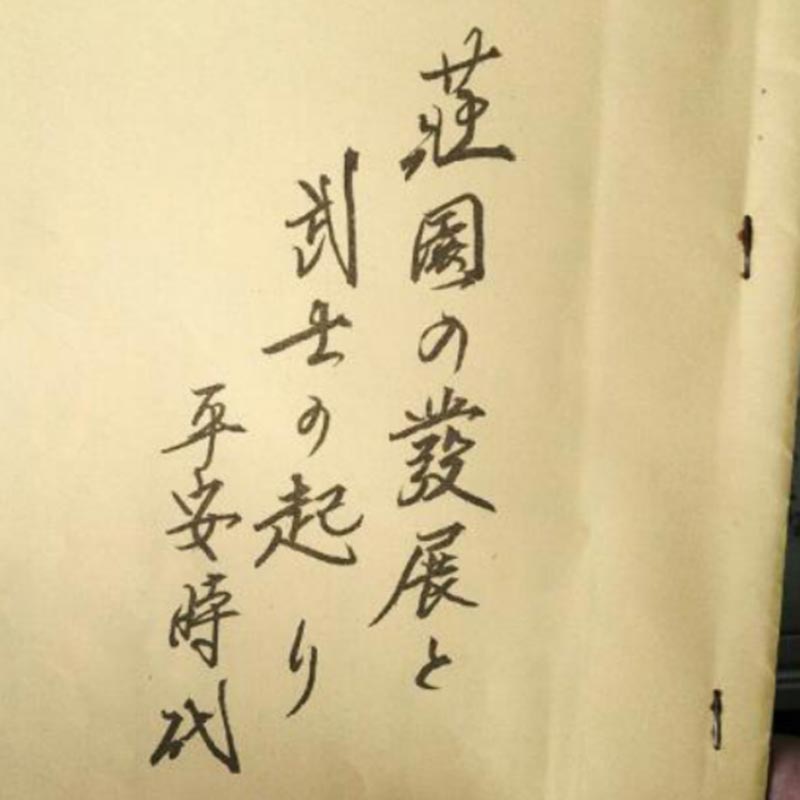 荘園の發展と
武士の起り
平安時代